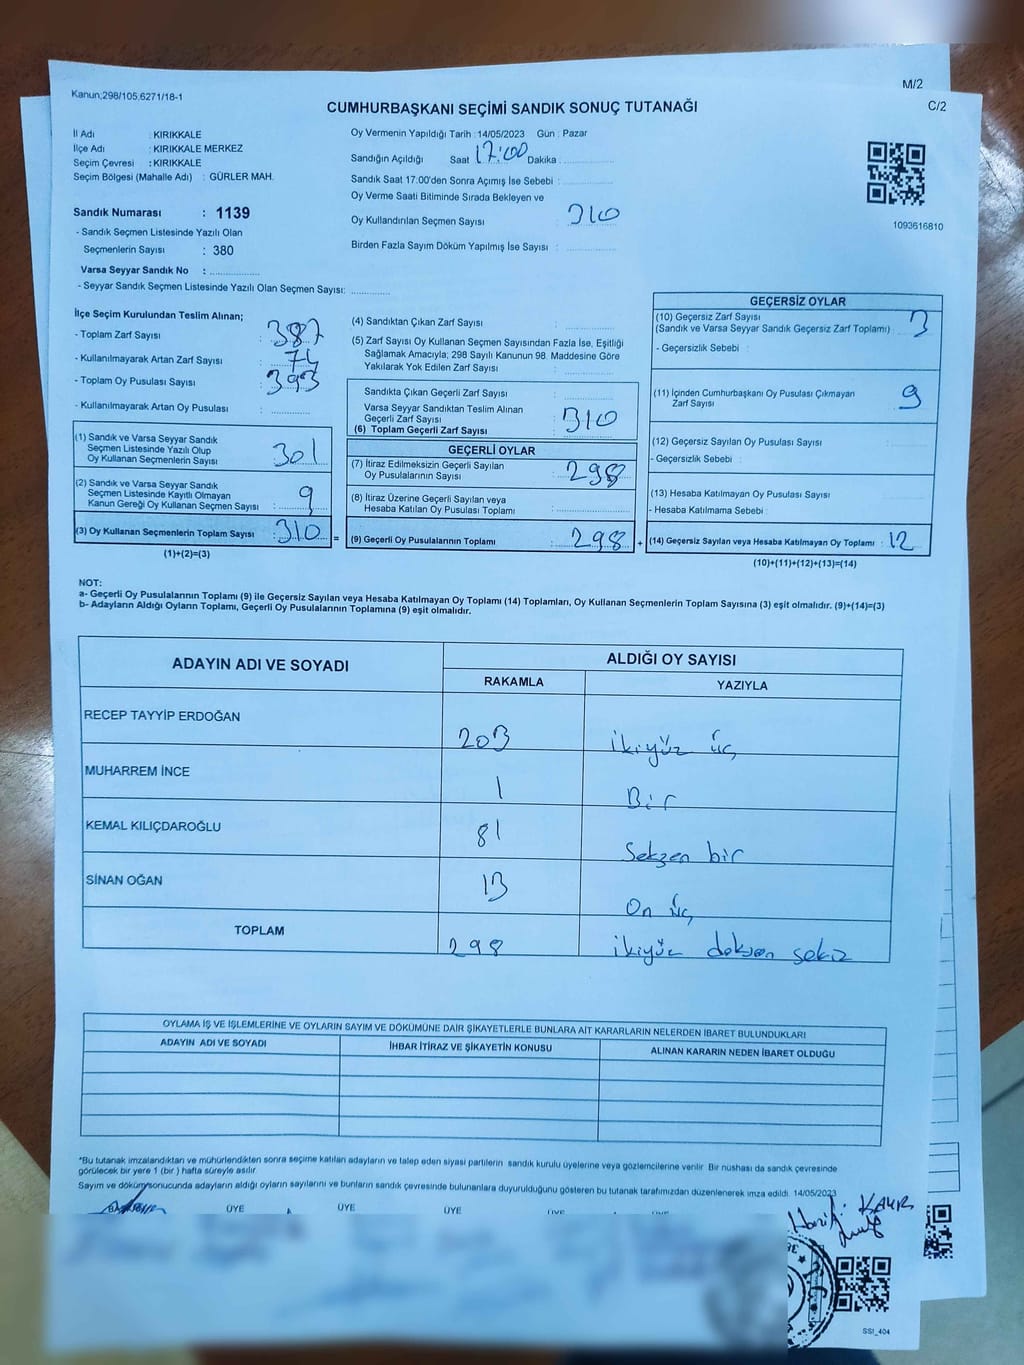 Kanun;298/105,6271/18-1
M/2
C/2
CUMHURBAŞKANI SEÇİMİ SANDIK SONUÇ TUTANAĞI
İl Adı : KIRIKKALE
İlçe Adı : KIRIKKALE MERKEZ
Seçim Çevresi : KIRIKKALE
Seçim Bölgesi (Mahalle Adı) : GÜRLER MAH.
Sandık Numarası : 1139
- Sandık Seçmen Listesinde Yazılı Olan
Seçmenlerin Sayısı : 380
Varsa Seyyar Sandık No :
- Seyyar Sandık Seçmen Listesinde Yazılı Olan Seçmen Sayısı:
Oy Vermenin Yapıldığı Tarih : 14/05/2023 Gün : Pazar
Sandığın Açıldığı Saat 17:00 Dakika :
Sandık Saat 17:00'den Sonra Açımış İse Sebebi :
Oy Verme Saati Bitiminde Sırada Bekleyen ve
Oy Kullandırılan Seçmen Sayısı : 310
Birden Fazla Sayım Döküm Yapılmış İse Sayısı :
1093616810
İlçe Seçim Kurulundan Teslim Alınan;
- Toplam Zarf Sayısı : 387
- Kullanılmayarak Artan Zarf Sayısı : 74
- Toplam Oy Pusulası Sayısı : 393
- Kullanılmayarak Artan Oy Pusulası :
(1) Sandık ve Varsa Seyyar Sandık
Seçmen Listesinde Yazılı Olup
Oy Kullanan Seçmenlerin Sayısı : 301
(2) Sandık ve Varsa Seyyar Sandık
Seçmen Listesinde Kayıtlı Olmayan
Kanun Gereği Oy Kullanan Seçmen Sayısı : 9
(3) Oy Kullanan Seçmenlerin Toplam Sayısı : 310 =
(1)+(2)=(3)
(4) Sandıktan Çıkan Zarf Sayısı :
(5) Zarf Sayısı Oy Kullanan Seçmen Sayısından Fazla İse, Eşitliği
Sağlamak Amacıyla; 298 Sayılı Kanunun 98. Maddesine Göre
Yakılarak Yok Edilen Zarf Sayısı :
Sandıkta Çıkan Geçerli Zarf Sayısı :
Varsa Seyyar Sandıktan Teslim Alınan
Geçerli Zarf Sayısı
(6) Toplam Geçerli Zarf Sayısı : 310
GEÇERLİ OYLAR
(7) İtiraz Edilmeksizin Geçerli Sayılan
Oy Pusulalarının Sayısı : 298
(8) İtiraz Üzerine Geçerli Sayılan veya
Hesaba Katılan Oy Pusulası Toplamı :
(9) Geçerli Oy Pusulalarının Toplamı : 298 +
GEÇERSİZ OYLAR
(10) Geçersiz Zarf Sayısı
(Sandık ve Varsa Seyyar Sandık Geçersiz Zarf Toplamı) : 3
- Geçersizlik Sebebi :
(11) İçinden Cumhurbaşkanı Oy Pusulası Çıkmayan
Zarf Sayısı : 9
(12) Geçersiz Sayılan Oy Pusulası Sayısı :
- Geçersizlik Sebebi :
(13) Hesaba Katılmayan Oy Pusulası Sayısı :
- Hesaba Katılmama Sebebi :
(14) Geçersiz Sayılan veya Hesaba Katılmayan Oy Toplamı : 12
(10)+(11)+(12)+(13)=(14)
NOT:
a- Geçerli Oy Pusulalarının Toplamı (9) ile Geçersiz Sayılan veya Hesaba Katılmayan Oy Toplamı (14) Toplamları, Oy Kullanan Seçmenlerin Toplam Sayısına (3) eşit olmalıdır. (9)+(14)=(3)
b- Adayların Aldığı Oyların Toplamı, Geçerli Oy Pusulalarının Toplamına (9) eşit olmalıdır.
ADAYIN ADI VE SOYADI
ALDIĞI OY SAYISI
RAKAMLA YAZIYLA
RECEP TAYYİP ERDOĞAN 203 ikiyüz üç
MUHARREM İNCE 1 Bir
KEMAL KILIÇDAROĞLU 81 Seksen bir
SİNAN OĞAN 13 On üç
TOPLAM 298 ikiyüz doksan sekiz
OYLAMA İŞ VE İŞLEMLERİNE VE OYLARIN SAYIM VE DÖKÜMÜNE DAİR ŞİKAYETLERLE BUNLARA AİT KARARLARIN NELERDEN İBARET BULUNDUKLARI
ADAYIN ADI VE SOYADI İHBAR İTİRAZ VE ŞİKAYETİN KONUSU ALINAN KARARIN NEDEN İBARET OLDUĞU
*Bu tutanak imzalandıktan ve mühürlendikten sonra seçime katılan adayların ve talep eden siyasi partilerin sandık kurulu üyelerine veya gözlemcilerine verilir. Bir nüshası da sandık çevresinde
görülecek bir yere 1 (bir ) hafta süreyle asılır.
Sayım ve döküm sonucunda adayların aldığı oyların sayılarını ve bunların sandık çevresinde bulunanlara duyurulduğunu gösteren bu tutanak tarafımızdan düzenlenerek imza edildi. 14/05/2023
ÜYE ÜYE ÜYE ÜYE ÜYE
SSI_404